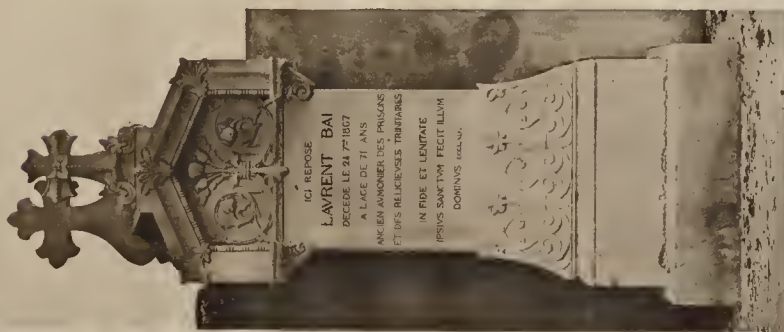 ICI REPOSE
LAVRENT BAI
DECEDE LE 24 7re 1867
A LAGE DE 71 ANS
ANCIEN AVMONIER DES PRISONS
ET DES RELIGIEVSES TRINITAIRES
IN FIDE ET LENITATE
IPSIVS SANCTVM FECIT ILLVM
DOMINVS